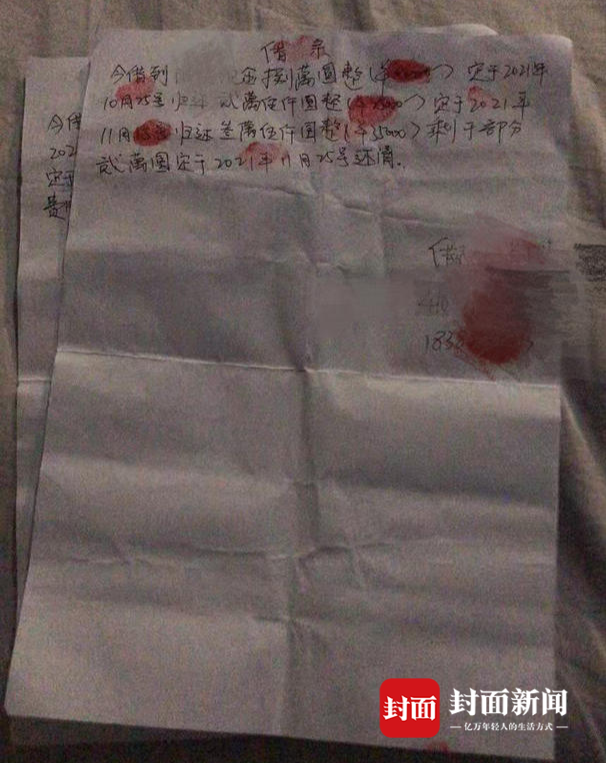 借条
今借到 捌萬圆整(¥ ) 定于2021年
10月25号归还 贰萬伍仟圆整(¥25000) 定于2021年
11月15号归还叁萬伍仟圆整(¥35000) 剩于部分
贰萬圆定于2021年11月25号还清.
借
183
今借
202
定于
贵
封面 封面新闻
亿万年轻人的生活方式